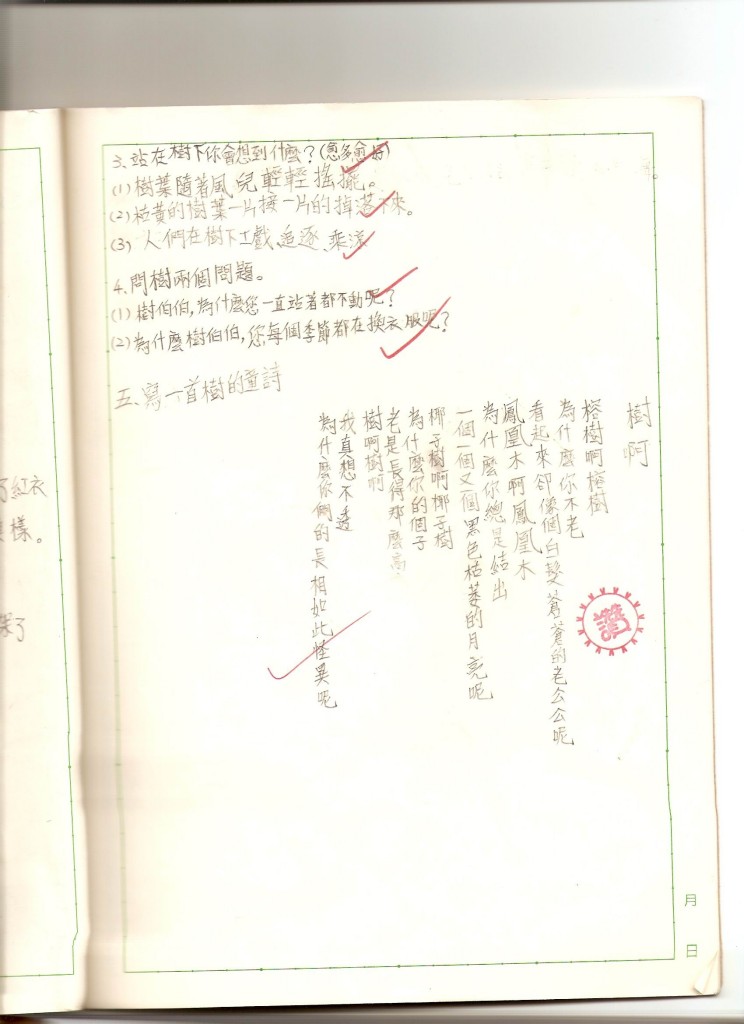 3、站在樹下你會想到什麼?(愈多愈好)
(1)樹葉隨著風兒輕輕搖擺。
(2)枯黃的樹葉一片接一片的掉落下來。
(3)人們在樹下嬉戲、追逐、乘涼
4、問樹兩個問題。
(1)樹伯伯,為什麼您一直站著都不動呢?
(2)為什麼樹伯伯,您每個季節都在換衣服呢?
五、寫一首樹的童詩
樹啊
榕樹啊榕樹
為什麼你不老
看起來卻像個白髮蒼蒼的老公公呢
鳳凰木啊鳳凰木
為什麼你總是結出
一個一個又一個黑色枯萎的月亮呢
椰子樹啊椰子樹
為什麼你的個子
老是長得那麼高
樹啊樹啊
我真想不透
為什麼你們的長相如此怪異呢
讚
了紅衣
樣。
月
日